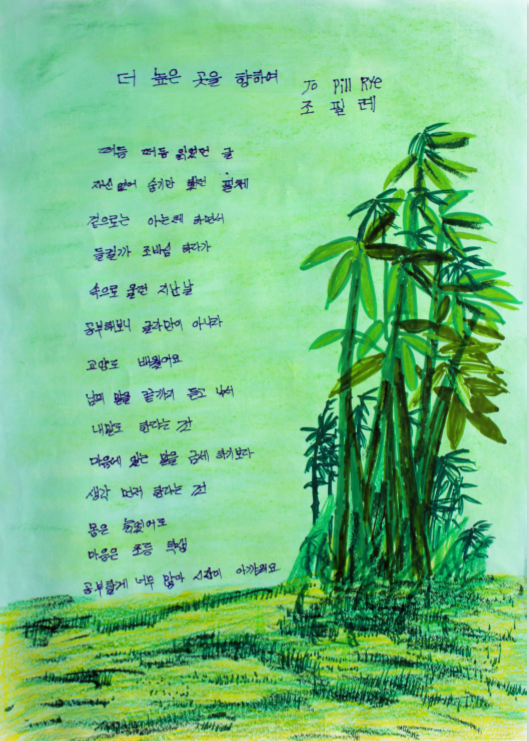 더 높은 곳을 향하여
To Pill Rye
조 필 레
떠듬 떠듬 읽었던 글
자신 없어 숨기만 했던 필체
겉으로는 아는체 하면서
들킬까 조바심 하다가
속으로 울던 지난날
공부해보니 글자만이 아니라
교양도 배웠어요
남의 말을 끝까지 듣고 나서
내말도 한다는 것
마음에 있는 말을 금세 하기보다
생각 먼저 한다는 것
몸은 늙었어도
마음은 초등 학생
공부할게 너무 많아 시간이 아까워요